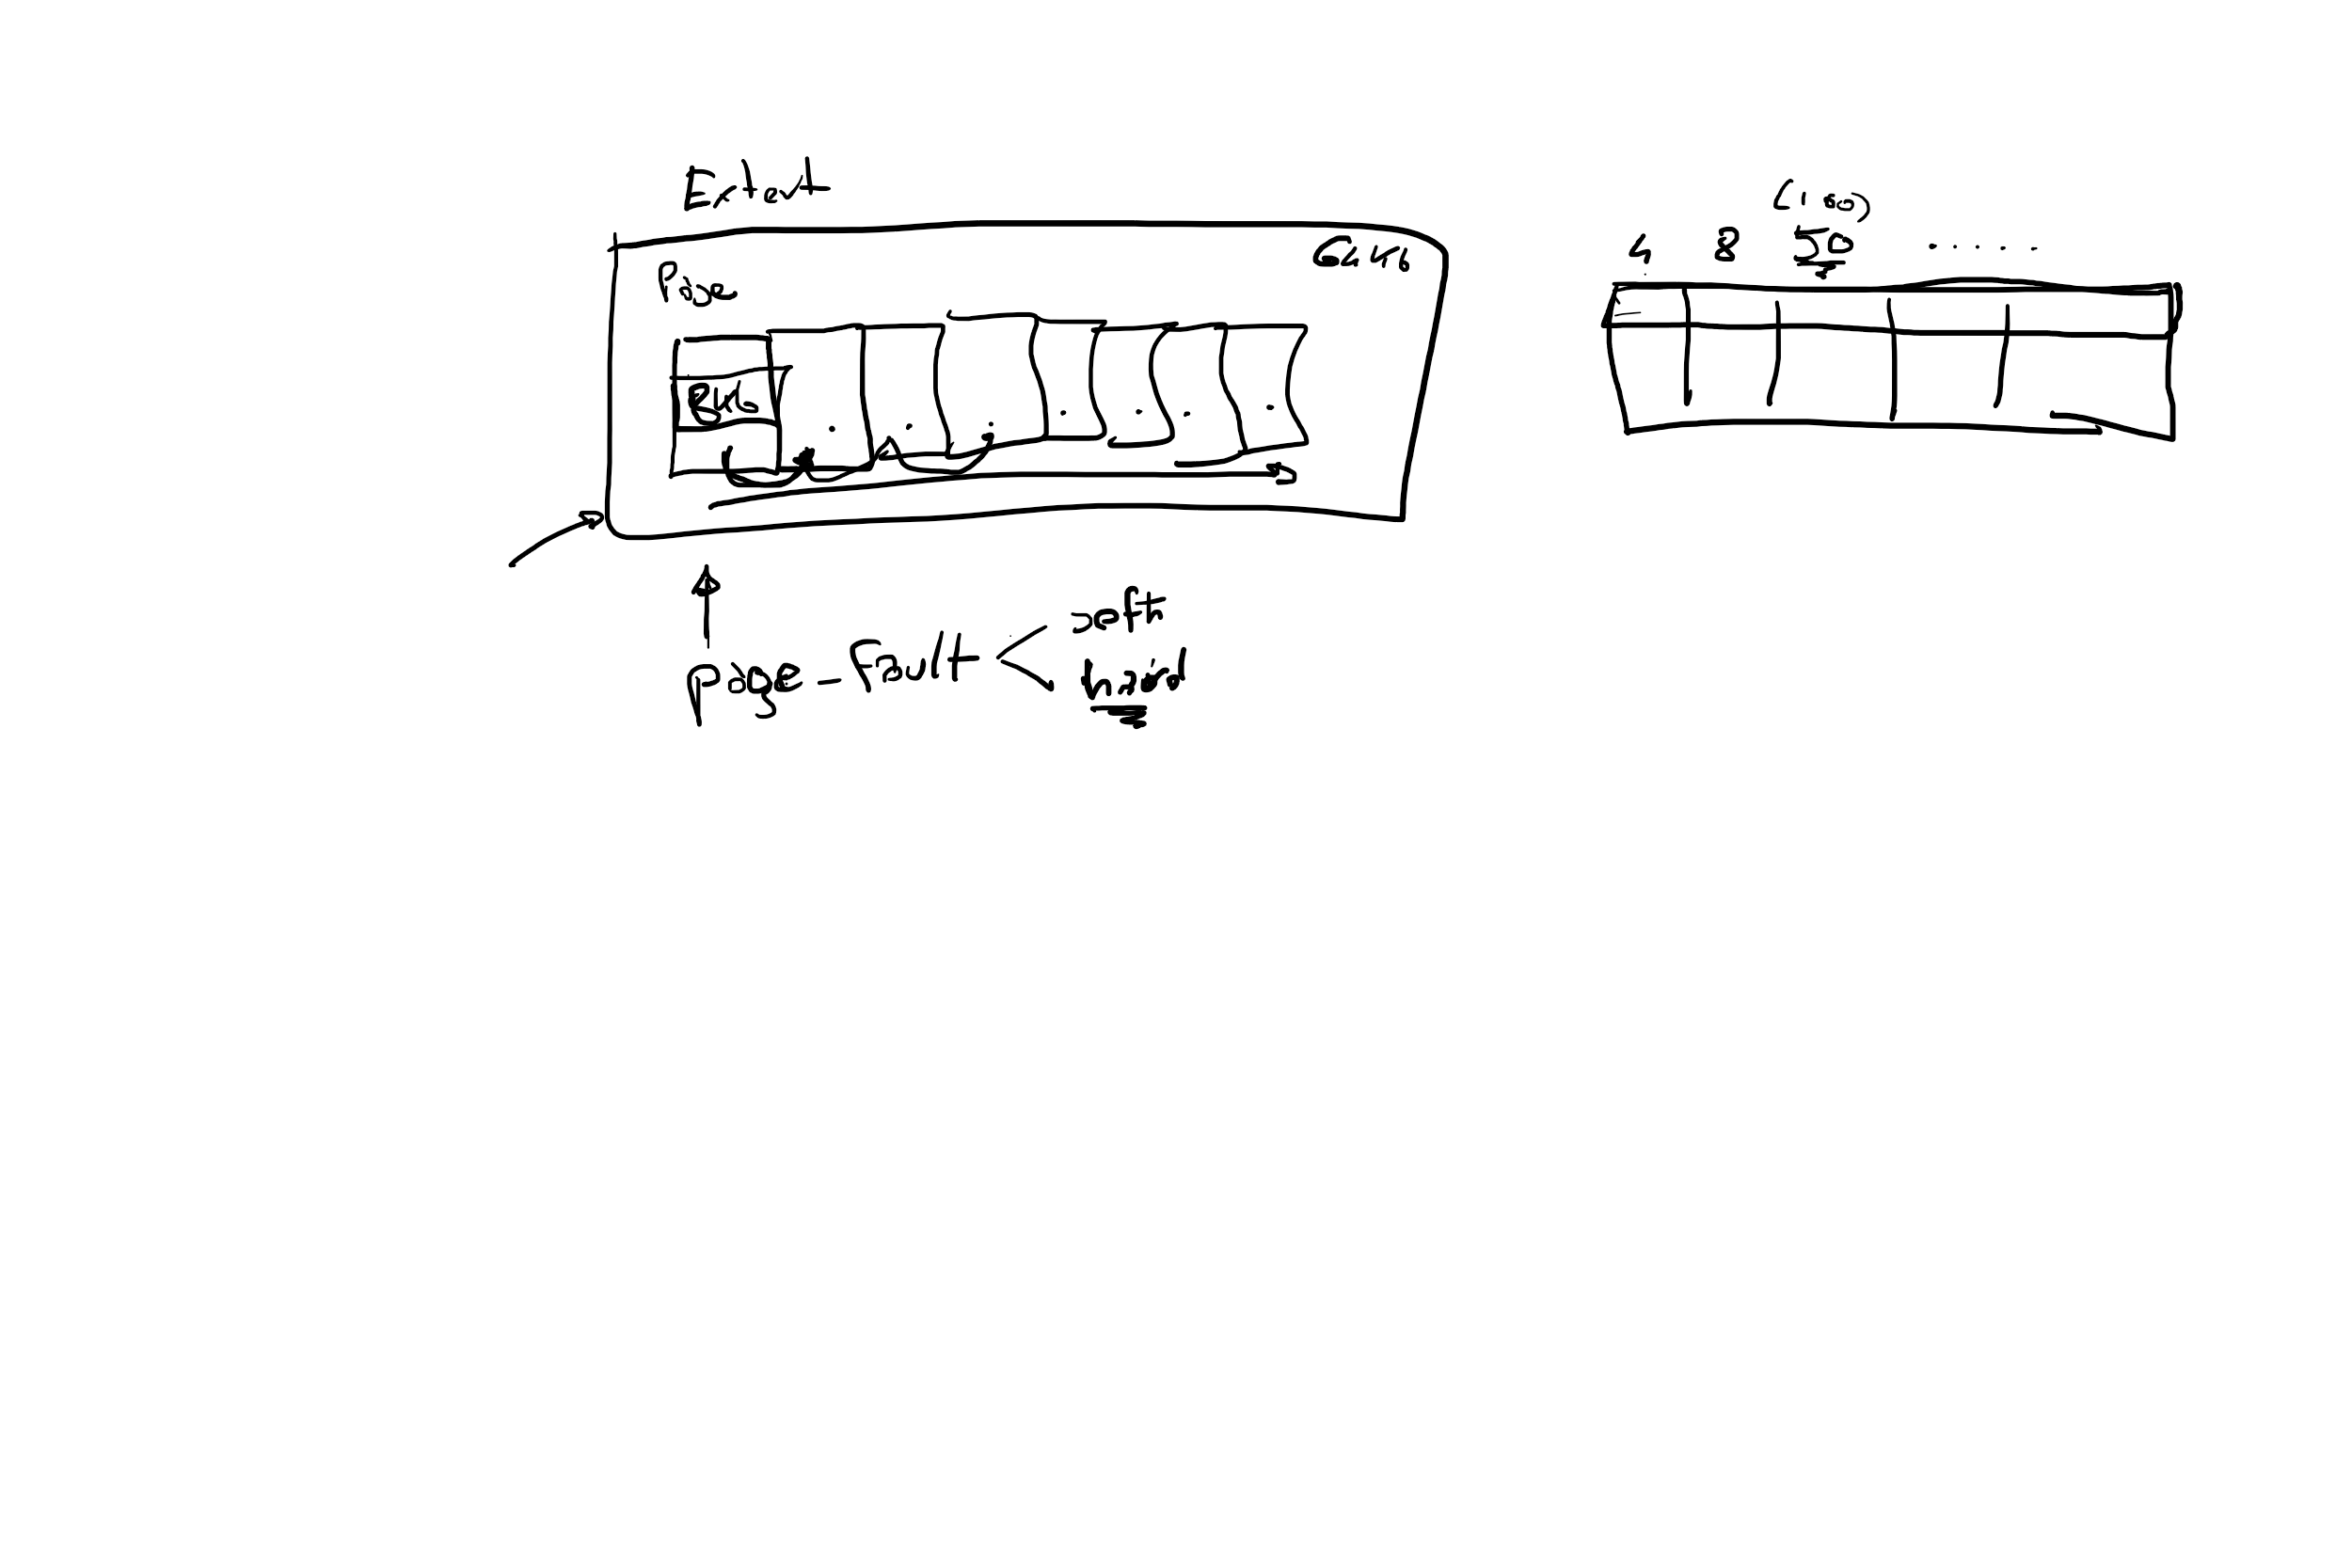 Extent
Page
64 kb
8kb
page-fault
soft
hard
(100)
4 8 50 .....